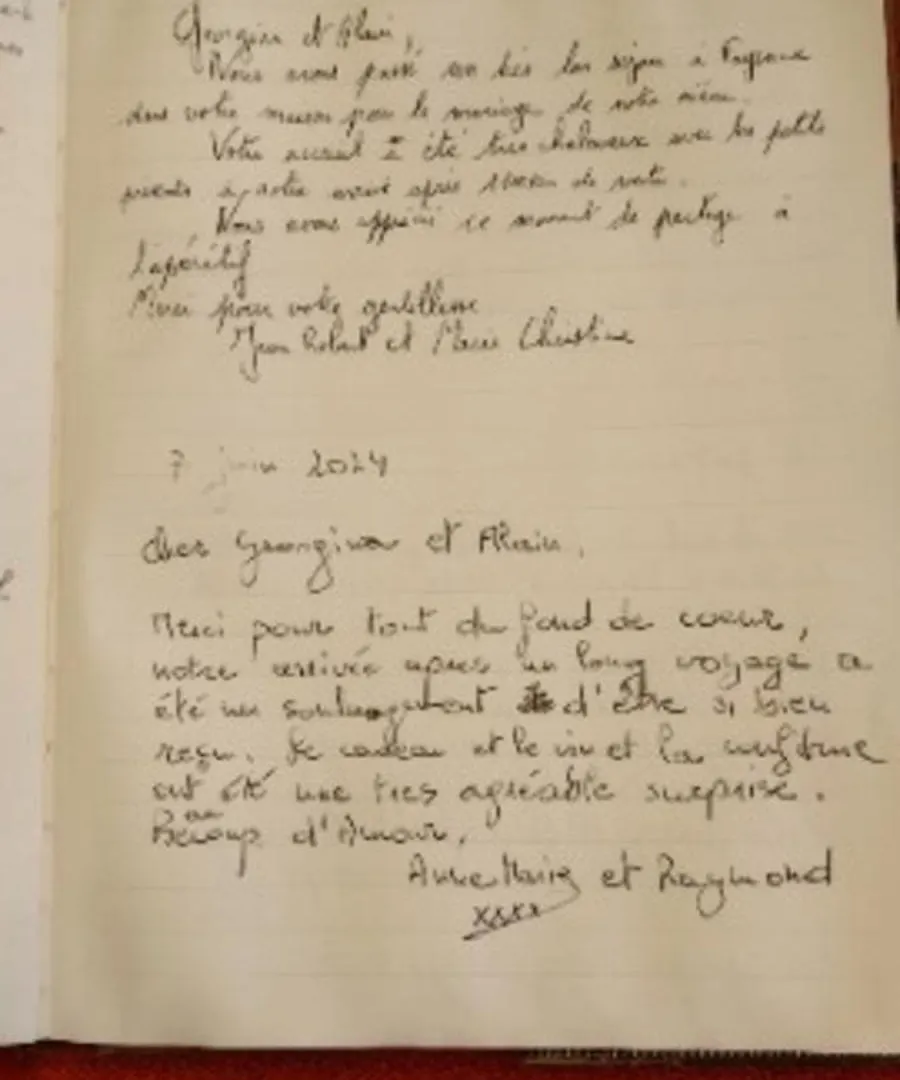 Georgina et Alain,
Nous avons passé un très bon séjour à Fayence
dans votre maison pour le mariage de notre nièce.
Votre accueil a été très chaleureux avec les petits
à notre arrivé après de route.
Nous avons apprécié ce moment de partage à
l'apéritif
Merci pour votre gentillesse
Jean Robert et Marie Christine
7 juin 2024
cher Georgina et Alain,
Merci pour tout du fond de coeur,
notre arrivée apres un long voyage a
été un soulagement d'être si bien
reçu. Le cadeau et le vin et la confiture
ont été une tres agréable surprise.
Beaucoup d'Amour.
Anne Marie et Raymond
xxxx